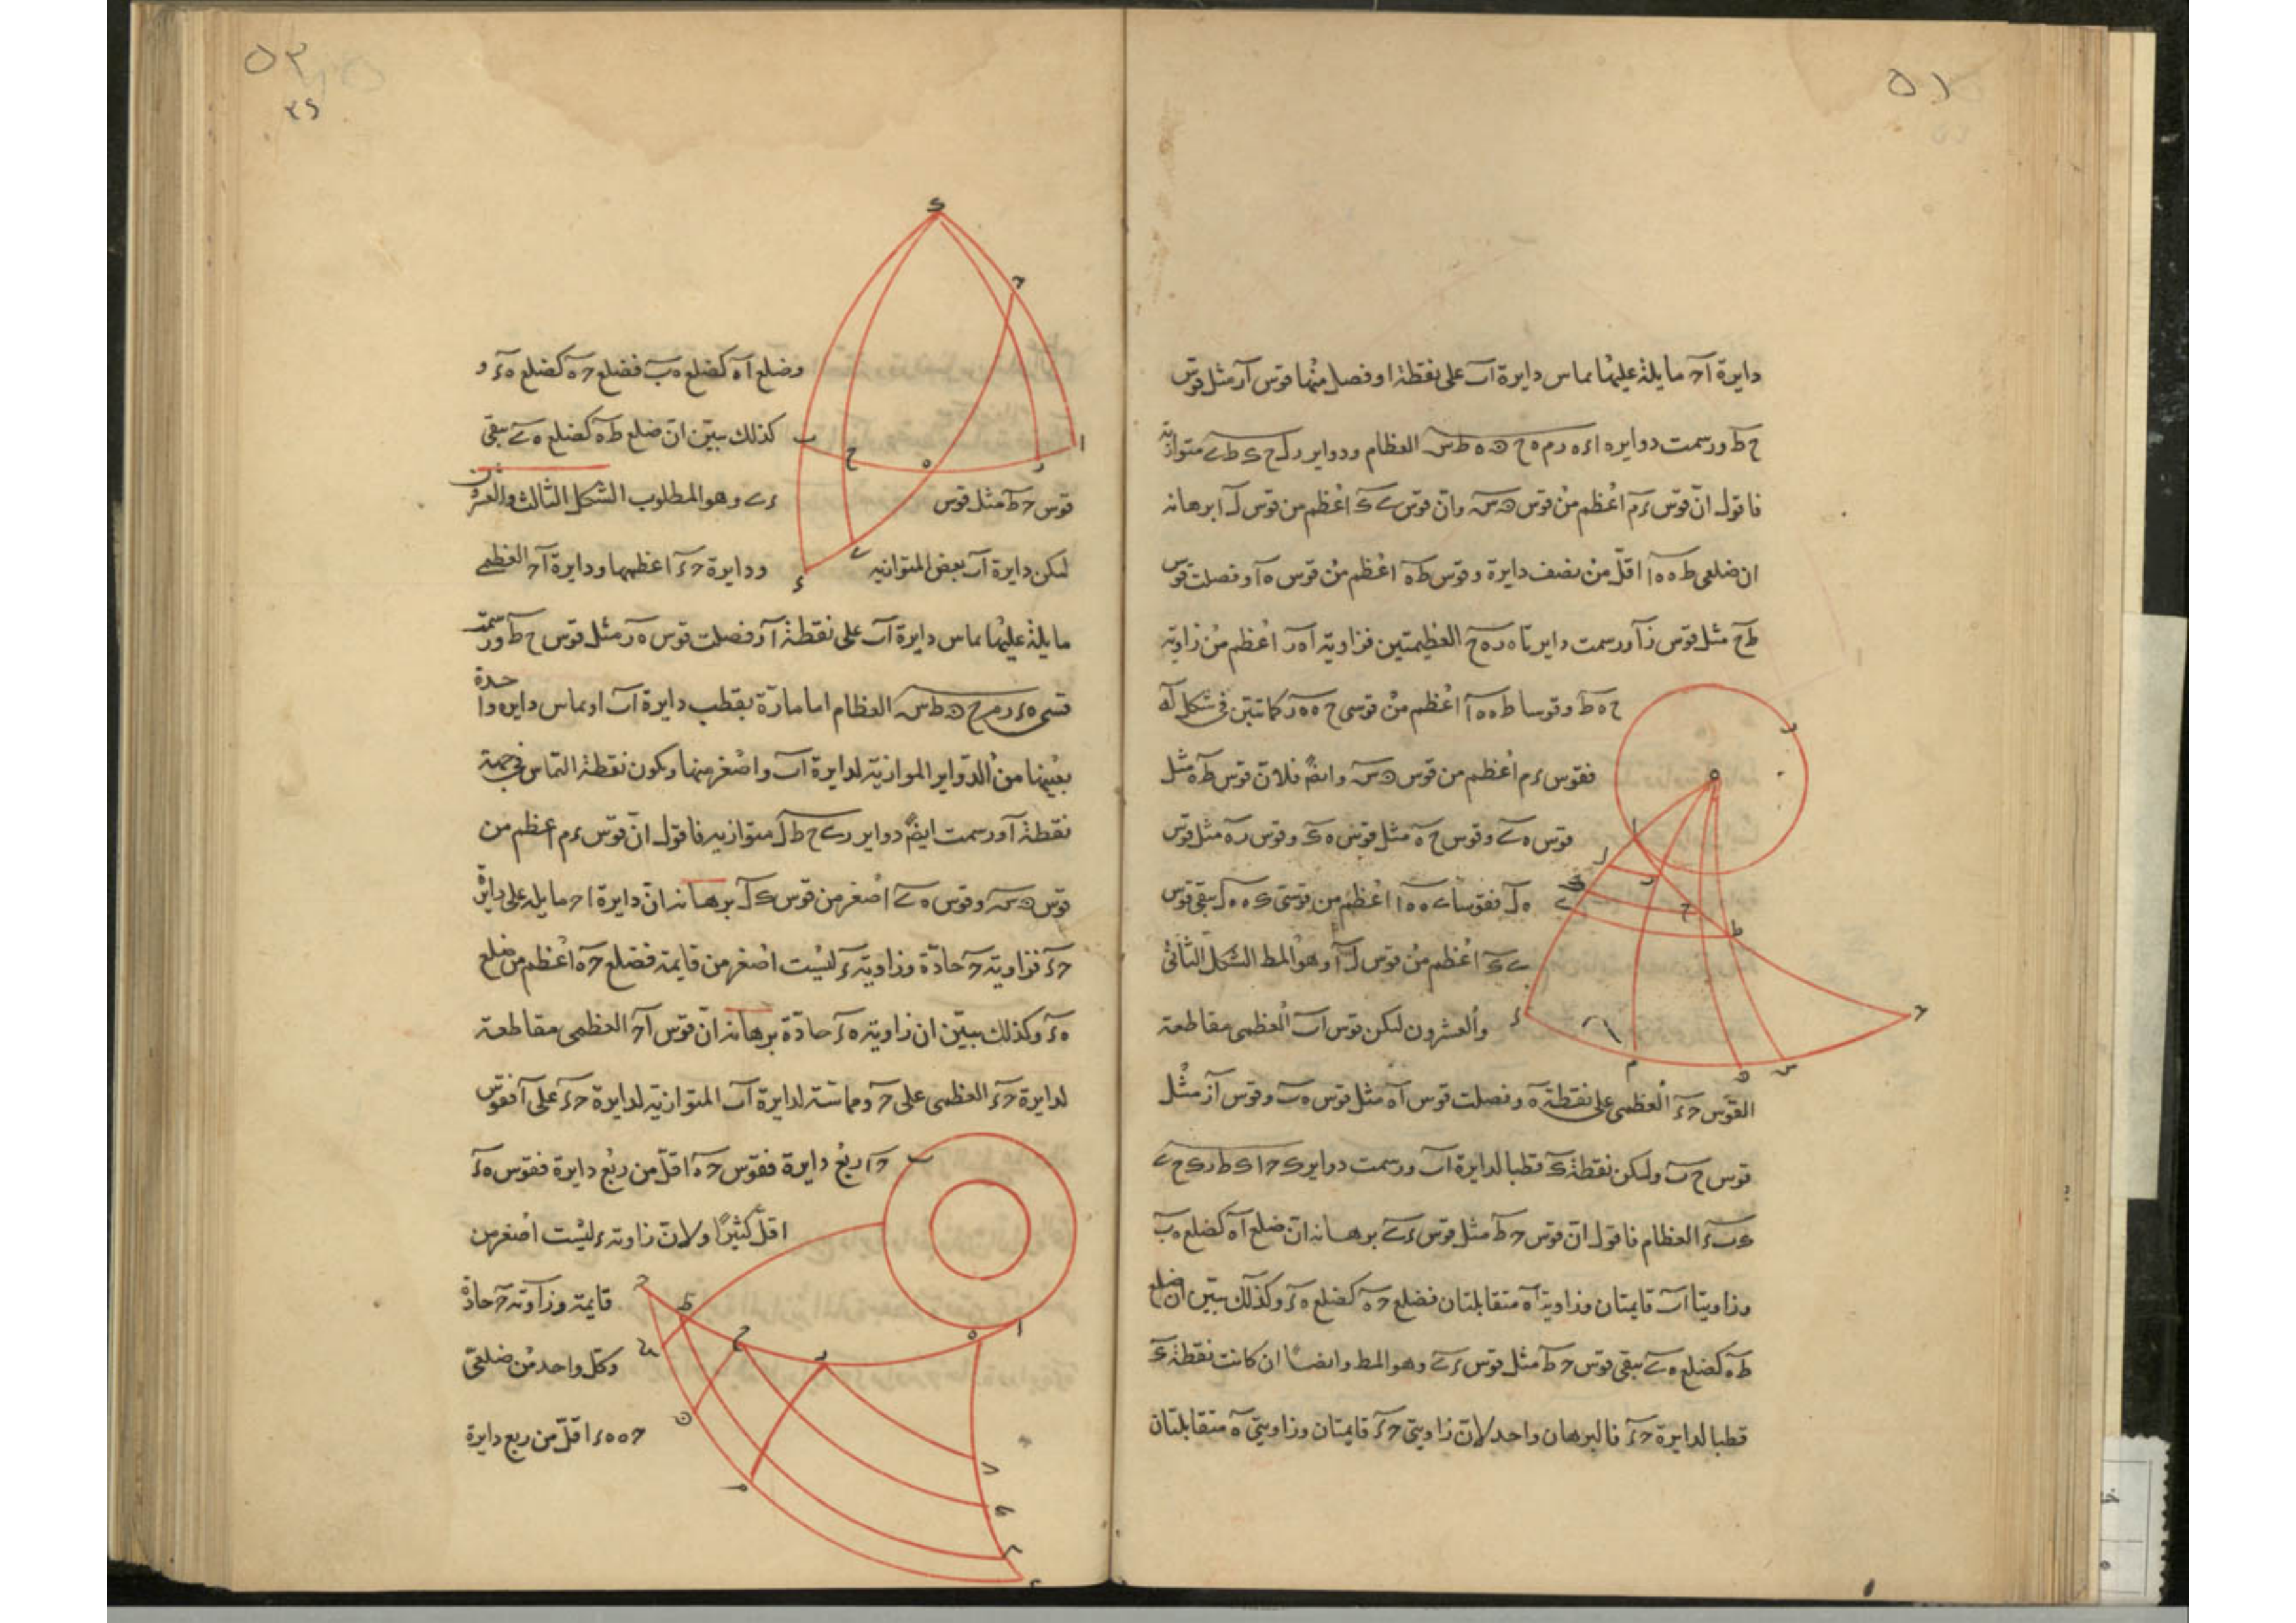 ٥١
دايرة آحـ مايلة عليها يماس دايرة آب على نقطة ا وفصل منها قوس آر مثل قوس
ح ط ورسمت دواير ه ا ء ه ر م ه ح ں ه ط س العظام ودواير ر ل ح ك ط ى متوازية
فاقول ان قوس ء م اعظم من قوس ں س وان قوس ى ك اعظم من قوس ل ا برهانه
ان ضلعى ط ه ه ا اقل من نصف دايرة وقوس ط ه اعظم من قوس ه ا وفصلت قوس
ط ح مثل قوس ز آ ورسمت دايرتا ه ر ه ح العظيمتين فزاوية ا ه ر اعظم من زاوية
ح ه ط وقوسا ط ه ه ا اعظم من قوسى ح ه ه ر كما تبين فى شكل
فقوس ء م اعظم من قوس ں س وايضً فلان قوس ط ه مثل
قوس ه ى وقوس ح ه مثل قوس ه ك وقوس ر ه مثل قوس
ه ل فقوسا ى ه ه ا اعظم من قوسى ك ه ه ل يبقى قوس
ى ك اعظم من قوس ل ا وهو المط الشكل الثانى
والعشرون ليكن قوس آب العظمى مقاطعة
القوس حـ ء العظمى على نقطة ه وفصلت قوس آه مثل قوس ه ب وقوس آز مثل
قوس ح ب وليكن نقطة ك قطبا لدايرة آب ورسمت دواير ك حـ ا ك ط ر ك ح ى
ك ب ء العظام فاقول ان قوس حـ ط مثل قوس ء ى برهانه ان ضلع آه كضلع ه ب
وزاويتا آ ب قايمتان وزاويتا ه متقابلتان فضلع حـ ه كضلع ه ء وكذلك تبين ان ضلع
ط ه كضلع ه ى يبقى قوس حـ ط مثل قوس ء ى وهو المط وايضاً ان كانت نقطة ك
قطبا لدايرة حـ ء فالبرهان واحد لان زاويتى حـ ء قايمتان وزاويتى ه متقابلتان
٥٣
٣٤
وضلع آه كضلع ه ب فضلع حـ ه كضلع ه ء و
كذلك تبين ان ضلع ط ه كضلع ه ى يبقى
قوس حـ ط مثل قوس ء ى وهو المطلوب الشكل الثالث والعشرون
ليكن دايرة آب بعض المتوازية ودايرة حـ ء اعظمها ودايرة آحـ العظمى
مايلة عليها يماس دايرة آب على نقطة آ وفصلت قوس ه ر مثل قوس ح ط ورسمت
قسى ه ء ر م ح ں ط س العظام اما مارة بقطب دايرة آب او يماس دايرة واحدة
بعينها من الدواير الموازية لدايرة آب واصغر منها ويكون نقطة التماس فى جهة
نقطة آ ورسمت ايضً دواير ر ى ح ط ل متوازيه فاقول ان قوس ء م اعظم من
قوس ں س وقوس ه ى اصغر من قوس ك ل برهانه ان دايرة ا حـ مايله على دايرة
حـ ء فزاوية حـ حادة وزاوية ء ليست اصغر من قايمة فضلع حـ ه اعظم من ضلع
ه ء وكذلك تبين ان زاوية ه ء حادة برهانه ان قوس آحـ العظمى مقاطعة
لدايرة حـ ء العظمى على حـ ومماسة لدايرة آب المتوازية لدايرة حـ ء على آ فقوس
حـ ا ربع دايرة فقوس حـ ه اقل من ربع دايرة فقوس ه ء
اقل كثيرًا ولان زاوية ء ليست اصغر من
قايمة وزاوية حـ حادة
وكل واحد من ضلعى
حـ ه ه ء اقل من ربع دايرة